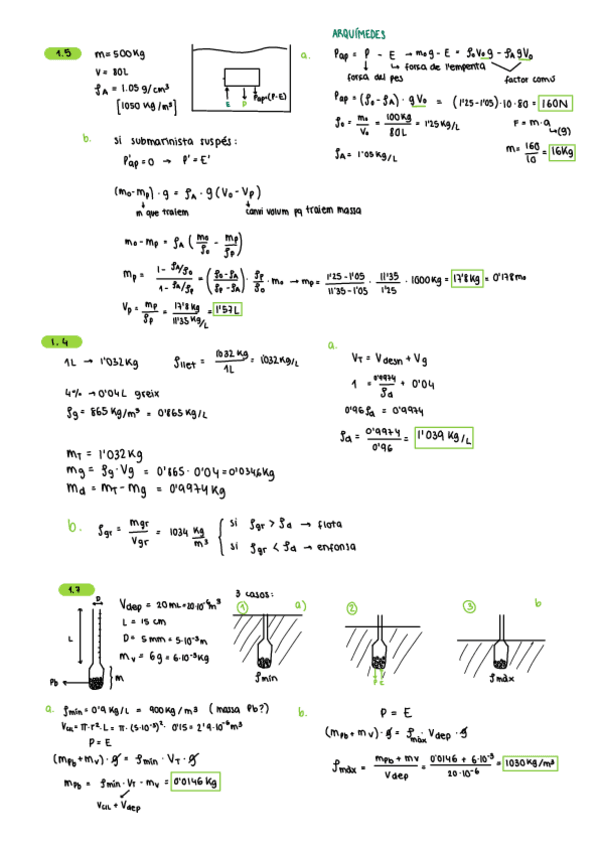 ARQUÍMEDES
1.5
m = 500 Kg
V = 80L
ρA = 1.05 g/cm³
[1050 Kg/m³]
E P Pap=(P-E)
a. Pap = P - E → mo g - E = ρo Vo g - ρA g Vo
força del pes
força de l'empenta
factor comú
Pap = (ρo - ρA) · g Vo = (1'25-1'05)·10·80 = 160N
ρo = mo/Vo = 100Kg/80L = 1'25 Kg/L
F = m·a
(g)
ρA = 1'05 Kg/L
m = 160/10 = 16Kg
b. si submarinista suspés:
P'ap = 0 → P' = E'
(mo-mp) · g = ρA · g (Vo - Vp)
m que traiem
canvi volum pq traiem massa
mo - mp = ρA (mo/ρo - mp/ρp)
mp = 1 - ρA/ρo / 1 - ρA/ρp = (ρo-ρA / ρp-ρA) · ρp/ρo · mo → mp = 1'25-1'05 / 11'35-1'05 · 11'35/1'25 · 1000 Kg = 17'8 Kg = 0'178 mo
Vp = mp/ρp = 17'8 Kg / 11'35 Kg/L = 1'57 L
1.4
1L → 1'032 Kg
ρllet = 1032 Kg / 1L = 1'032 Kg/L
4% → 0'04 L greix
ρg = 865 Kg/m³ = 0'865 Kg/L
mT = 1'032 Kg
mg = ρg · Vg = 0'865 · 0'04 = 0'0346 Kg
md = mT - mg = 0'9974 Kg
a.
VT = Vdesn + Vg
1 = 0'9974/ρd + 0'04
0'96 ρd = 0'9974
ρd = 0'9974/0'96 = 1'039 Kg/L
b. ρgr = mgr/Vgr = 1034 Kg/m³
si ρgr > ρd → flota
si ρgr < ρd → enfonsa
1.7
D
L
Pb
m
Vdep = 20 mL = 20·10⁻⁶ m³
L = 15 cm
D = 5 mm = 5·10⁻³ m
mv = 6 g = 6·10⁻³ Kg
3 casos:
1 a)
ρmin
2
P E
3 b
ρmàx
a. ρmin = 0'9 Kg/L = 900 Kg/m³ (massa Pb?)
VCIL = π·r²·L = π·(5·10⁻³)²·0'15 = 2'9·10⁻⁶ m³
P = E
(mPb + mv) · g = ρmin · VT · g
mPb = ρmin · VT - mv = 0'0146 Kg
VCIL + Vdep
b.
P = E
(mPb + mv) · g = ρmàx · Vdep · g
ρmàx = mPb + mv / Vdep = 0'0146 + 6·10⁻³ / 20·10⁻⁶ = 1030 Kg/m³